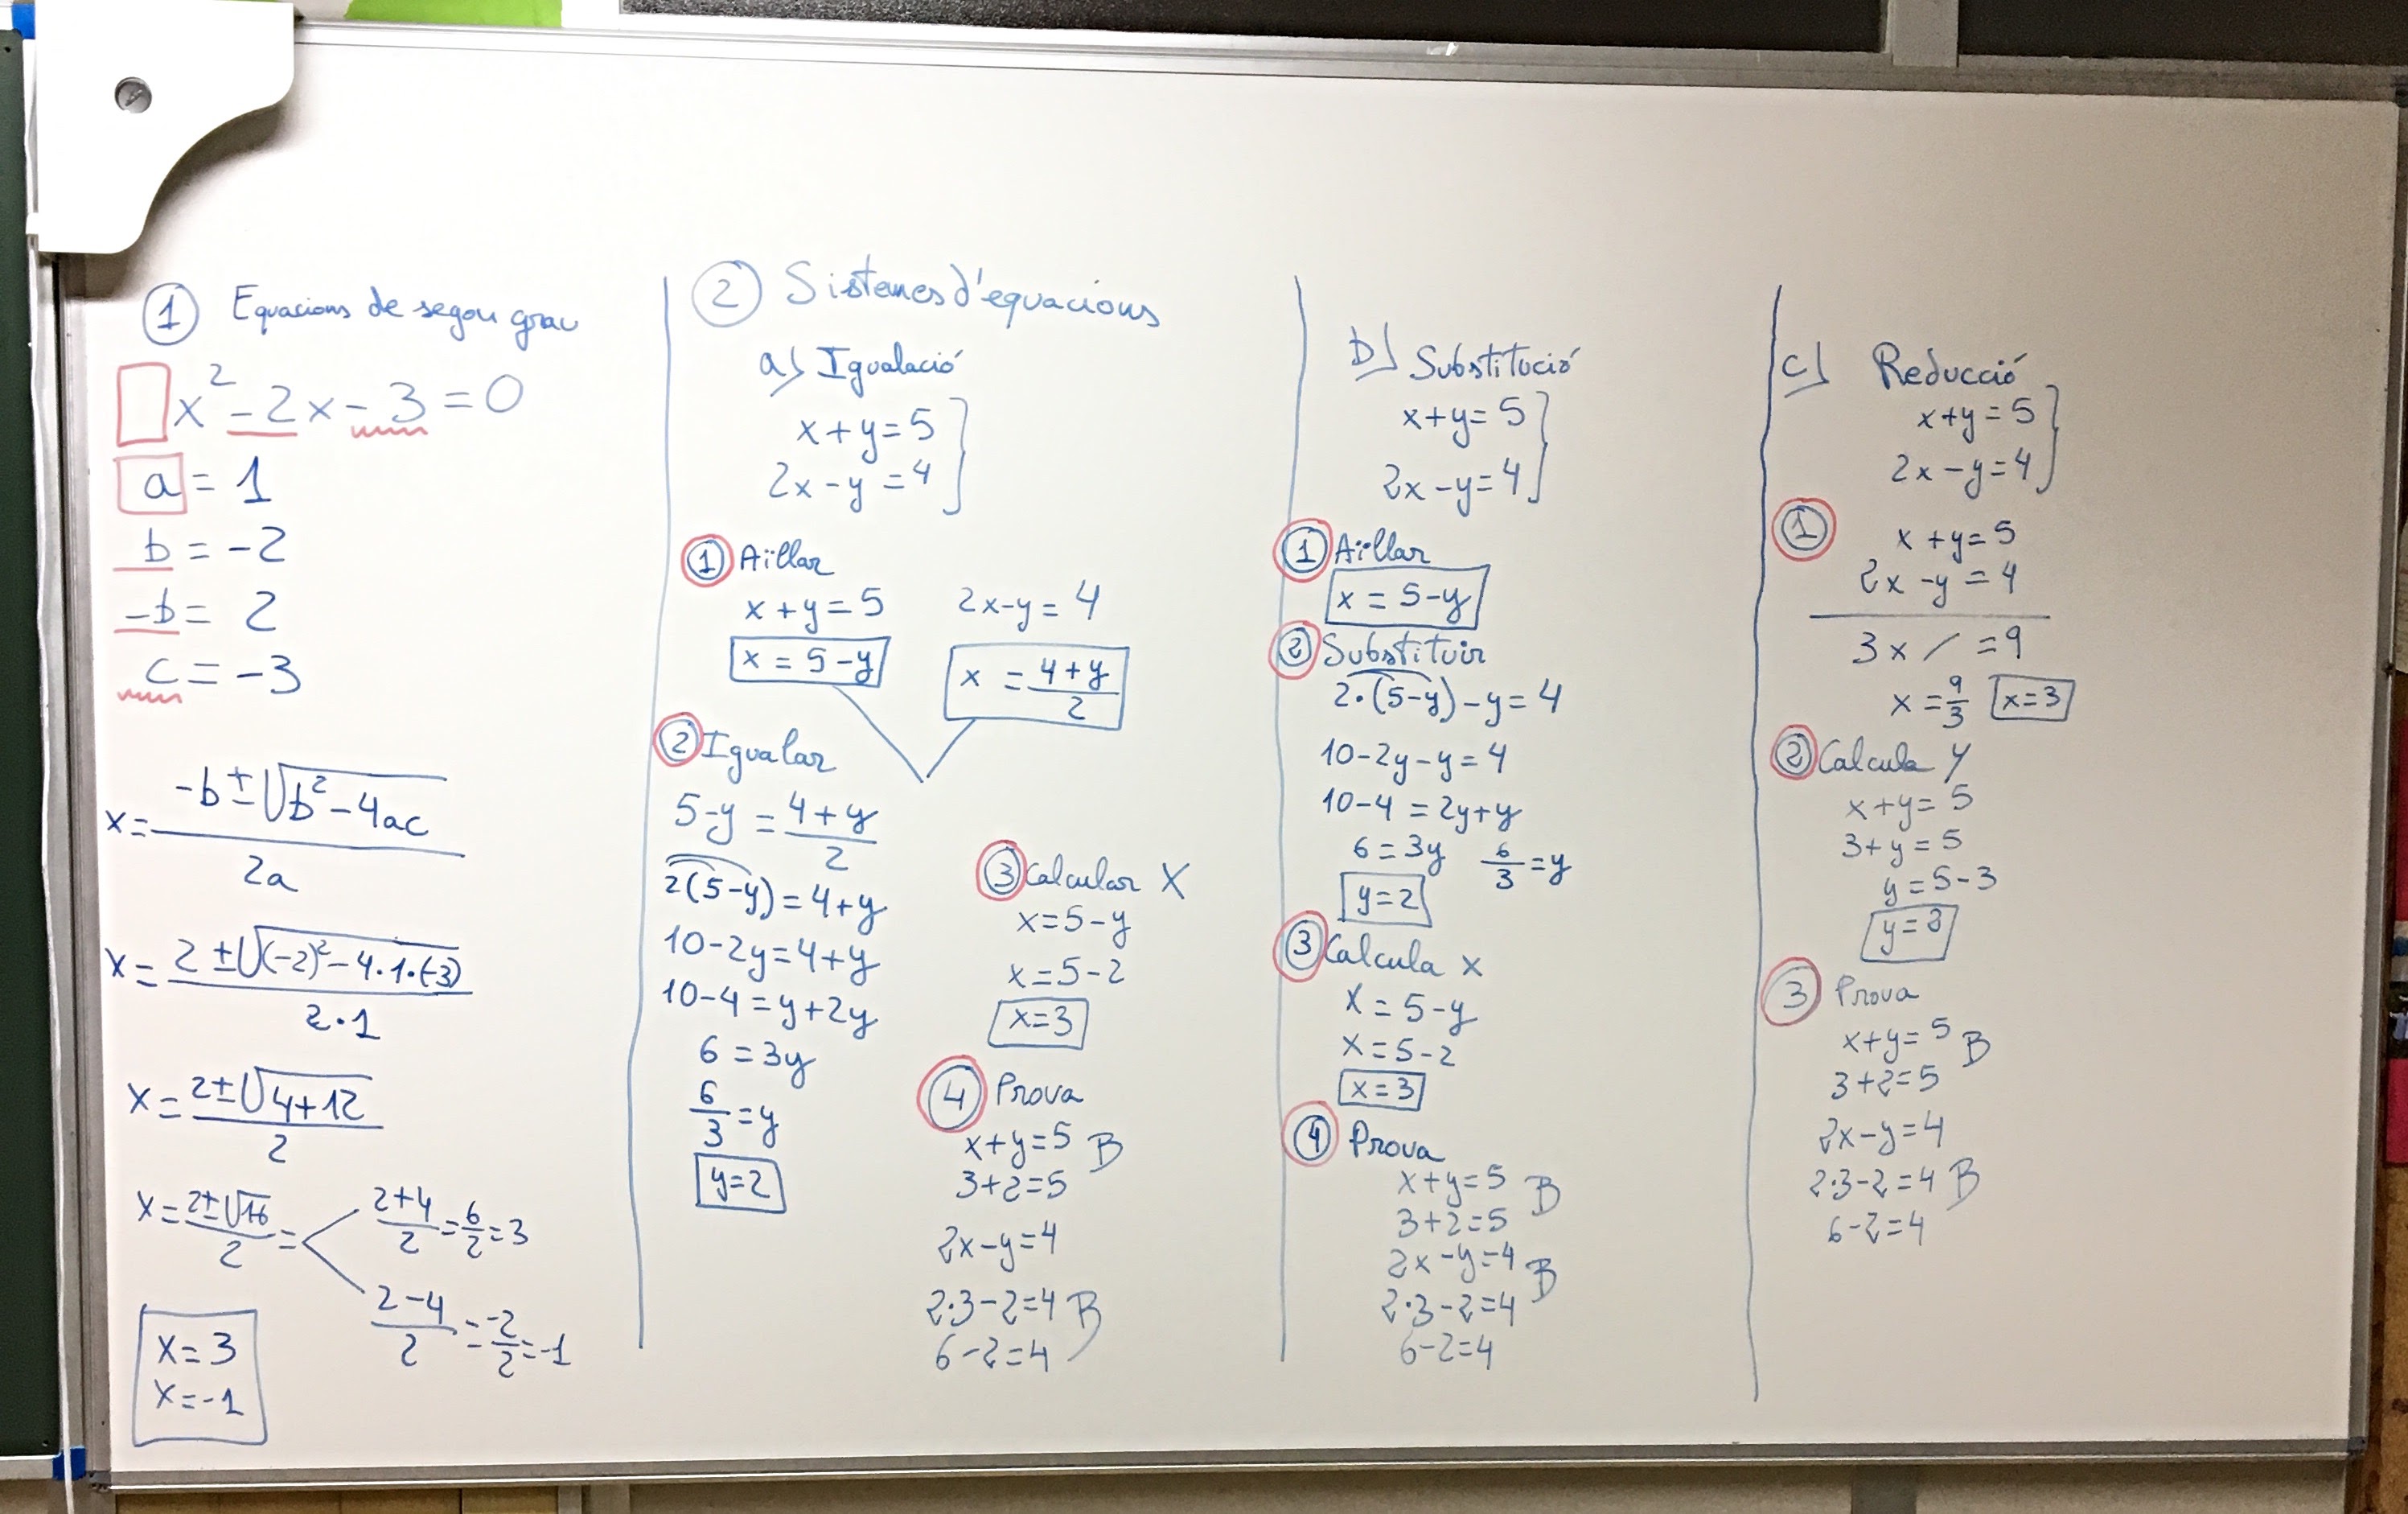 1 Equacions de segon grau
x² - 2x - 3 = 0
a = 1
b = -2
-b = 2
c = -3
x = (-b ± √(b² - 4ac)) / 2a
x = (2 ± √((-2)² - 4·1·(-3))) / 2·1
x = (2 ± √(4+12)) / 2
x = (2 ± √16) / 2 =
(2+4)/2 = 6/2 = 3
(2-4)/2 = -2/2 = -1
x = 3
x = -1
2 Sistemes d'equacions
a) Igualació
x + y = 5
2x - y = 4
1 Aïllar
x + y = 5
x = 5 - y
2x - y = 4
x = (4+y)/2
2 Igualar
5 - y = (4+y)/2
2(5-y) = 4+y
10 - 2y = 4+y
10 - 4 = y + 2y
6 = 3y
6/3 = y
y = 2
3 Calcular X
x = 5 - y
x = 5 - 2
x = 3
4 Prova
x + y = 5 B
3 + 2 = 5
2x - y = 4
2·3 - 2 = 4 B
6 - 2 = 4
b) Substitució
x + y = 5
2x - y = 4
1 Aïllar
x = 5 - y
2 Substituir
2·(5-y) - y = 4
10 - 2y - y = 4
10 - 4 = 2y + y
6 = 3y 6/3 = y
y = 2
3 Calcula x
x = 5 - y
x = 5 - 2
x = 3
4 Prova
x + y = 5 B
3 + 2 = 5
2x - y = 4 B
2·3 - 2 = 4
6 - 2 = 4
c) Reducció
x + y = 5
2x - y = 4
1
x + y = 5
2x - y = 4
3x / = 9
x = 9/3 x = 3
2 Calcula y
x + y = 5
3 + y = 5
y = 5 - 3
y = 3
3 Prova
x + y = 5 B
3 + 2 = 5
2x - y = 4
2·3 - 2 = 4 B
6 - 2 = 4